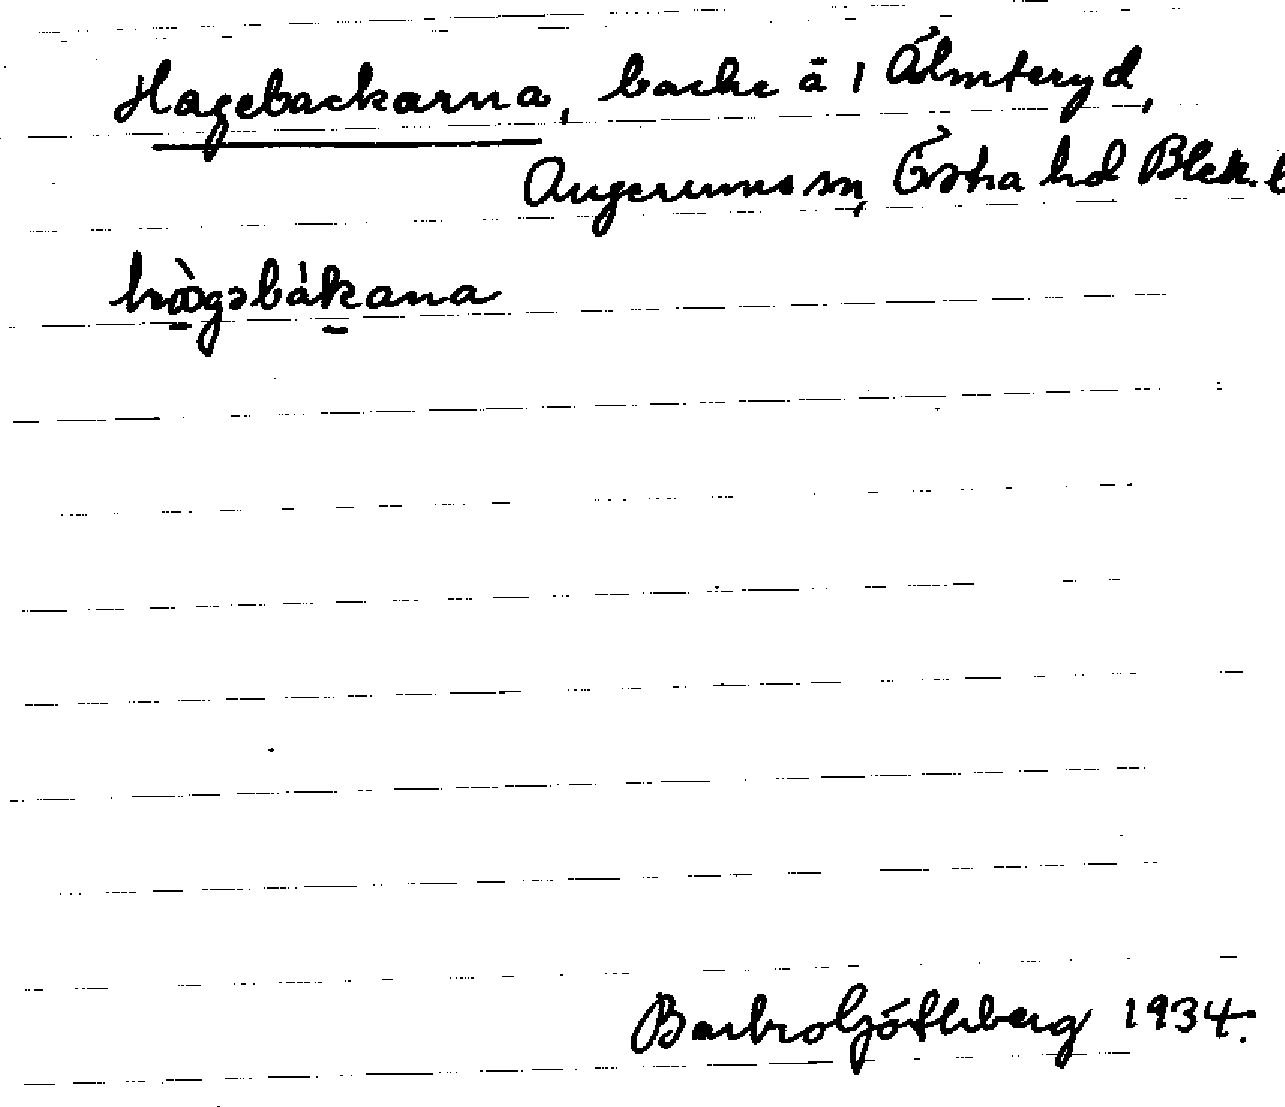 Hagebackarna, backe å 1 Älmteryd,
Augerums sn, Östra hd Blek. l
hɑ̀gəbákana
Barbro Götlberg 1934.